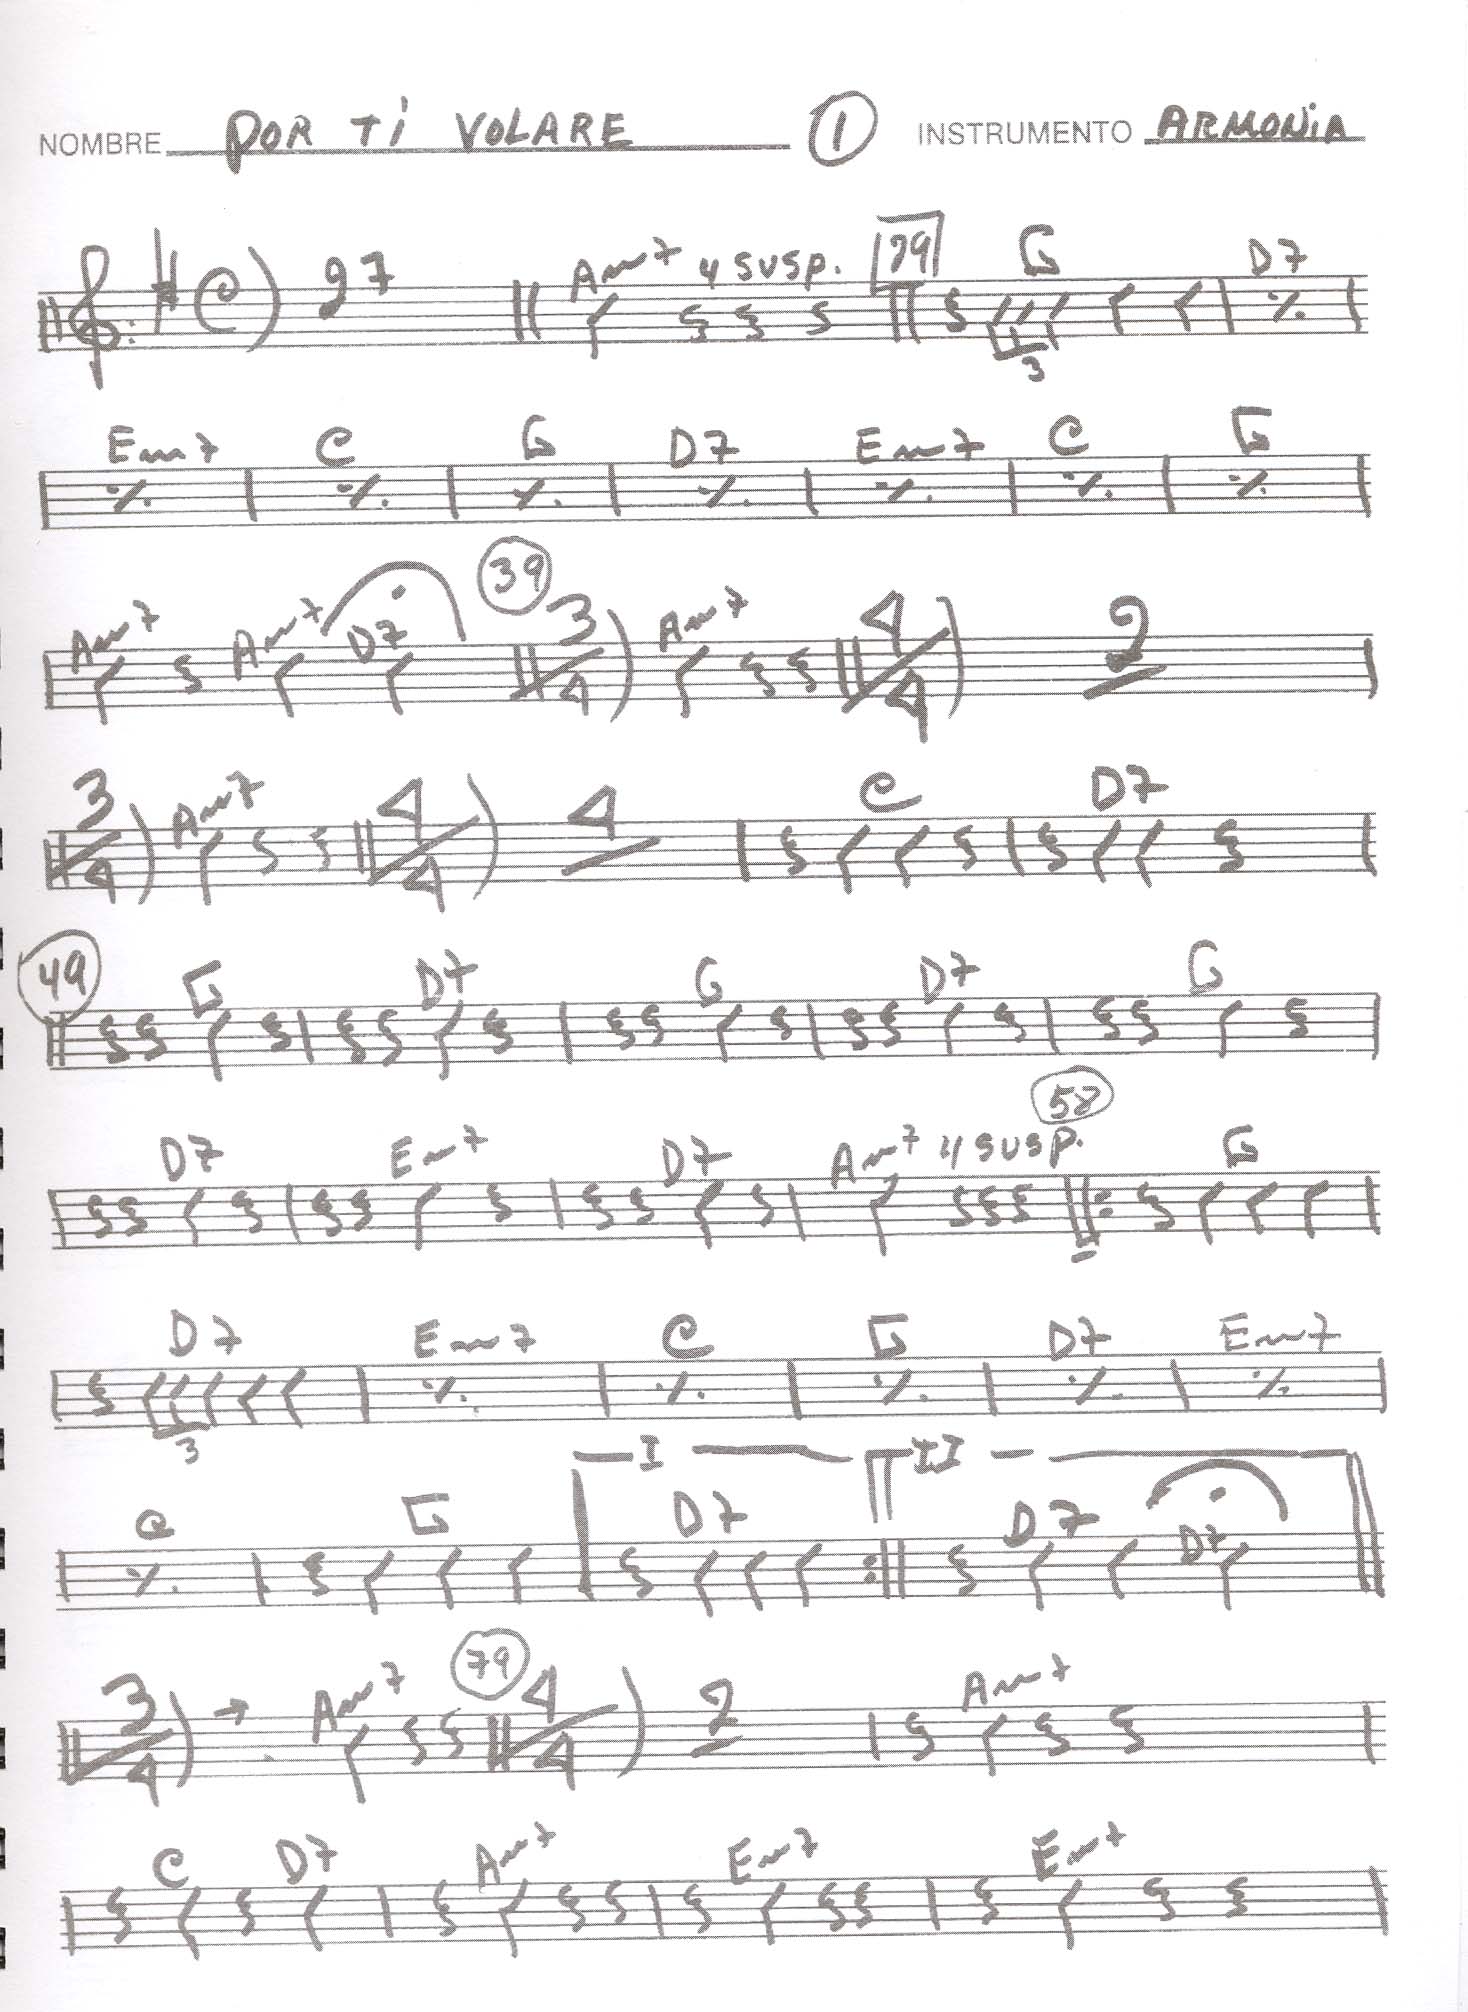 NOMBRE POR Ti VOLARE 1 INSTRUMENTO ARMONiA
C) 27 Am7 4 SUSP. 29 G D7
3
Em7 C G D7 Em7 C G
39
Am7 Am7 D7 3/4) Am7 4/4) 2
3/4) Am7 4/4) 4 C D7
49 G D7 G D7 G
58
D7 Em7 D7 Am7 4 SUSP. G
D7 Em7 C G D7 Em7
3
I II
C G D7 D7 D7
79
3/4) → Am7 4/4) 2 Am7
C D7 Am7 Em7 Em7